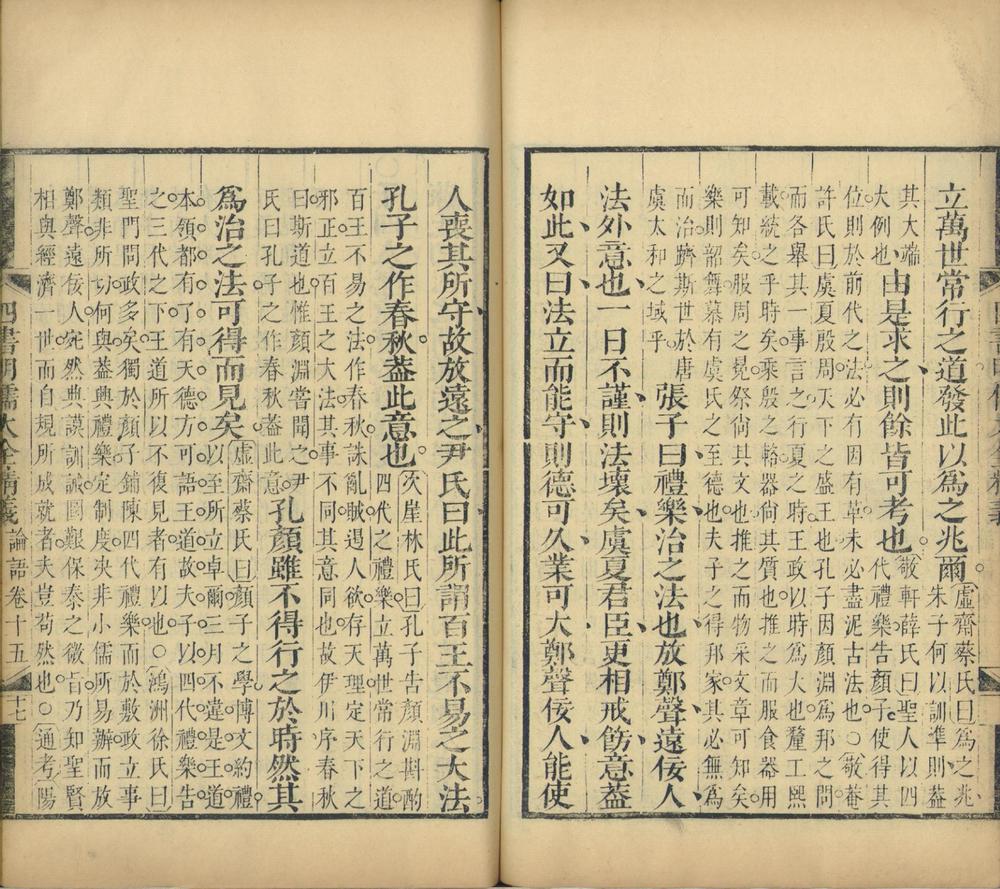 立萬世常行之道發此以為之兆爾虛齋蔡氏曰為之兆
其大端朱子何以訓準則葢
大例也由是求之則餘皆可考也敬軒薛氏曰聖人以四代禮樂告顏子使得其
位則於前代之法必有因有革未必盡泥古法也○敬菴
許氏曰虞夏殷周天下之盛王也孔子因顏淵為邦之問
而各舉其一事言之行夏之時王政以時為大也釐工熙
載統之乎時矣乘殷之輅器尚其質也推之而服食器用
可知矣服周之冕祭尚其文也推之而物采文章可知矣
樂則韶舞慕有虞氏之至德也夫子之得邦家其必無為
而治躋斯世於唐
虞太和之域乎張子曰禮樂治之法也放鄭聲遠佞人
法外意也一日不謹則法壞矣虞夏君臣更相戒飭意葢
如此又曰法立而能守則德可久業可大鄭聲佞人能使
人喪其所守故放遠之尹氏曰此所謂百王不易之大法
孔子之作春秋葢此意也次崖林氏曰孔子告顏淵斟酌四代之禮樂立萬世常行之道
百王不易之法作春秋誅亂賊遏人欲存天理定天下之
邪正立百王之大法其事不同其意同也故伊川序春秋
曰斯道也惟顏淵嘗聞之尹
氏曰孔子之作春秋葢此意孔顏雖不得行之於時然其
為治之法可得而見矣虛齋蔡氏曰顏子之學博文約禮以至所立卓爾三月不違是王道
本領都有了有天德方可語王道故夫子以四代禮樂告
之三代之下王道所以不復見者有以也○鴻洲徐氏曰
聖門問政多矣獨於顏子鋪陳四代禮樂而於敷政立事
類非所切何與葢與禮樂定制度決非小儒所易辦而放
鄭聲遠佞人宛然典謨訓誡圖艱保泰之微旨乃知聖賢
相與經濟一世而自規所成就者夫豈苟然也○通考陽
四書明儒大全精義 論語卷十五 十七